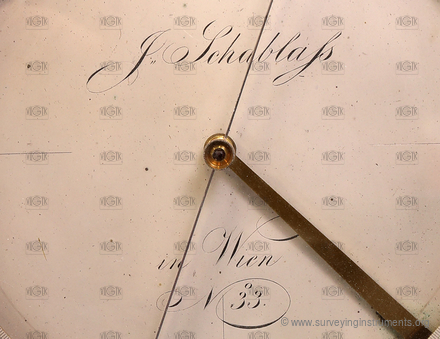 J. Schablass
in Wien
N° 33.
© www.surveyinginstruments.org